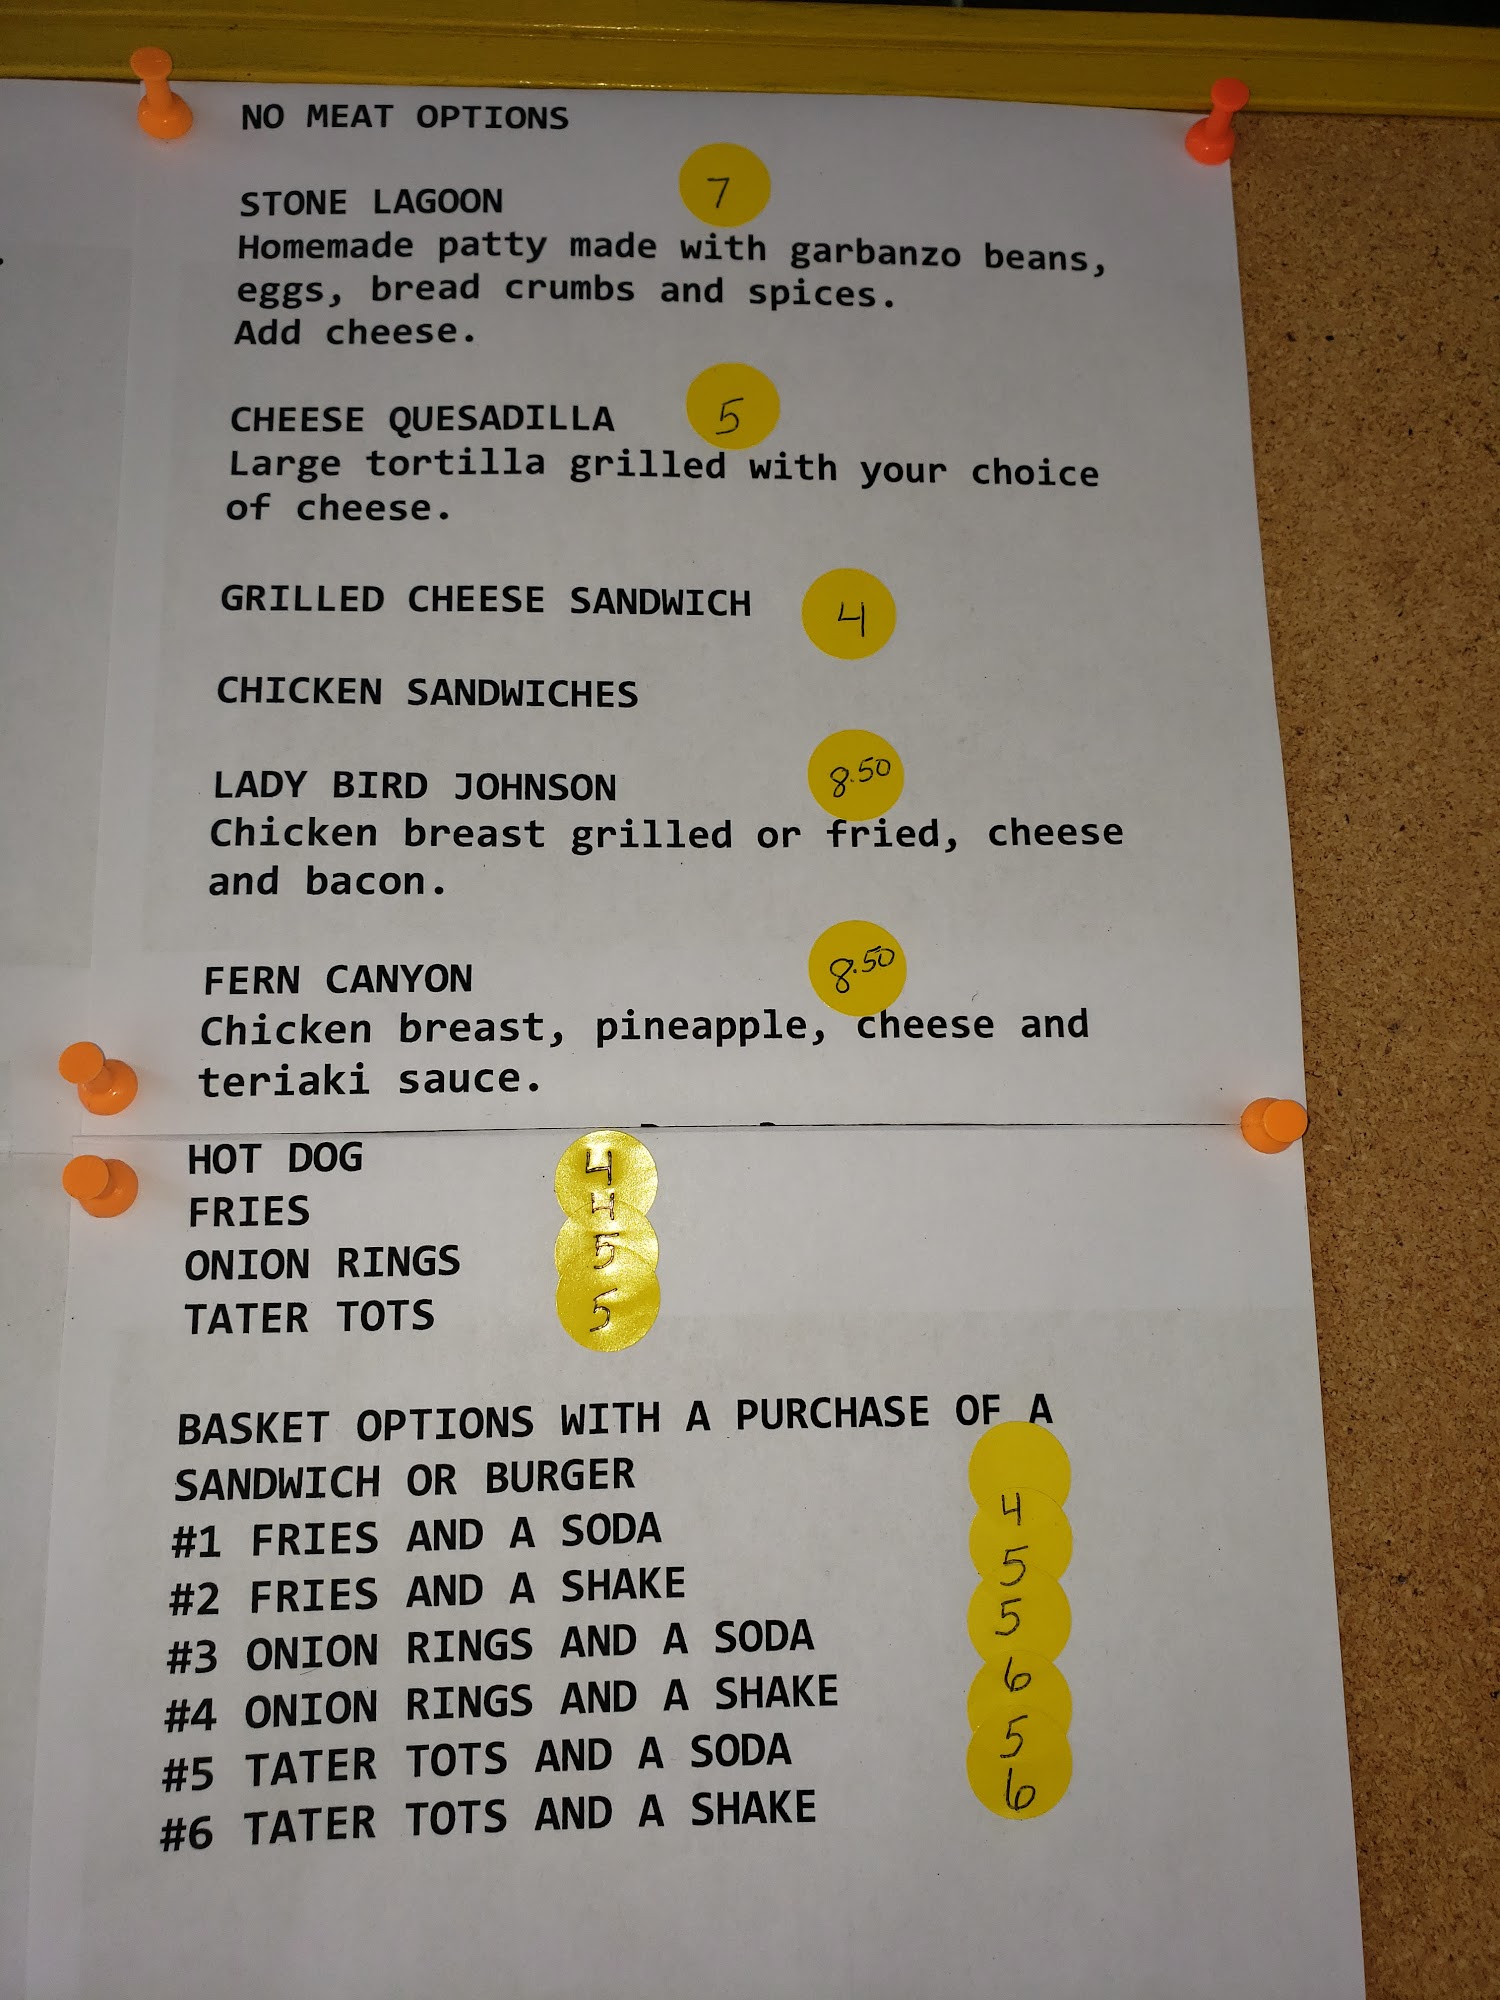 NO MEAT OPTIONS
STONE LAGOON 7
Homemade patty made with garbanzo beans,
eggs, bread crumbs and spices.
Add cheese.
CHEESE QUESADILLA 5
Large tortilla grilled with your choice
of cheese.
GRILLED CHEESE SANDWICH 4
CHICKEN SANDWICHES
LADY BIRD JOHNSON 8.50
Chicken breast grilled or fried, cheese
and bacon.
FERN CANYON 8.50
Chicken breast, pineapple, cheese and
teriaki sauce.
HOT DOG 4
FRIES 4
ONION RINGS 5
TATER TOTS 5
BASKET OPTIONS WITH A PURCHASE OF A
SANDWICH OR BURGER
#1 FRIES AND A SODA 4
#2 FRIES AND A SHAKE 5
#3 ONION RINGS AND A SODA 5
#4 ONION RINGS AND A SHAKE 6
#5 TATER TOTS AND A SODA 5
#6 TATER TOTS AND A SHAKE 6